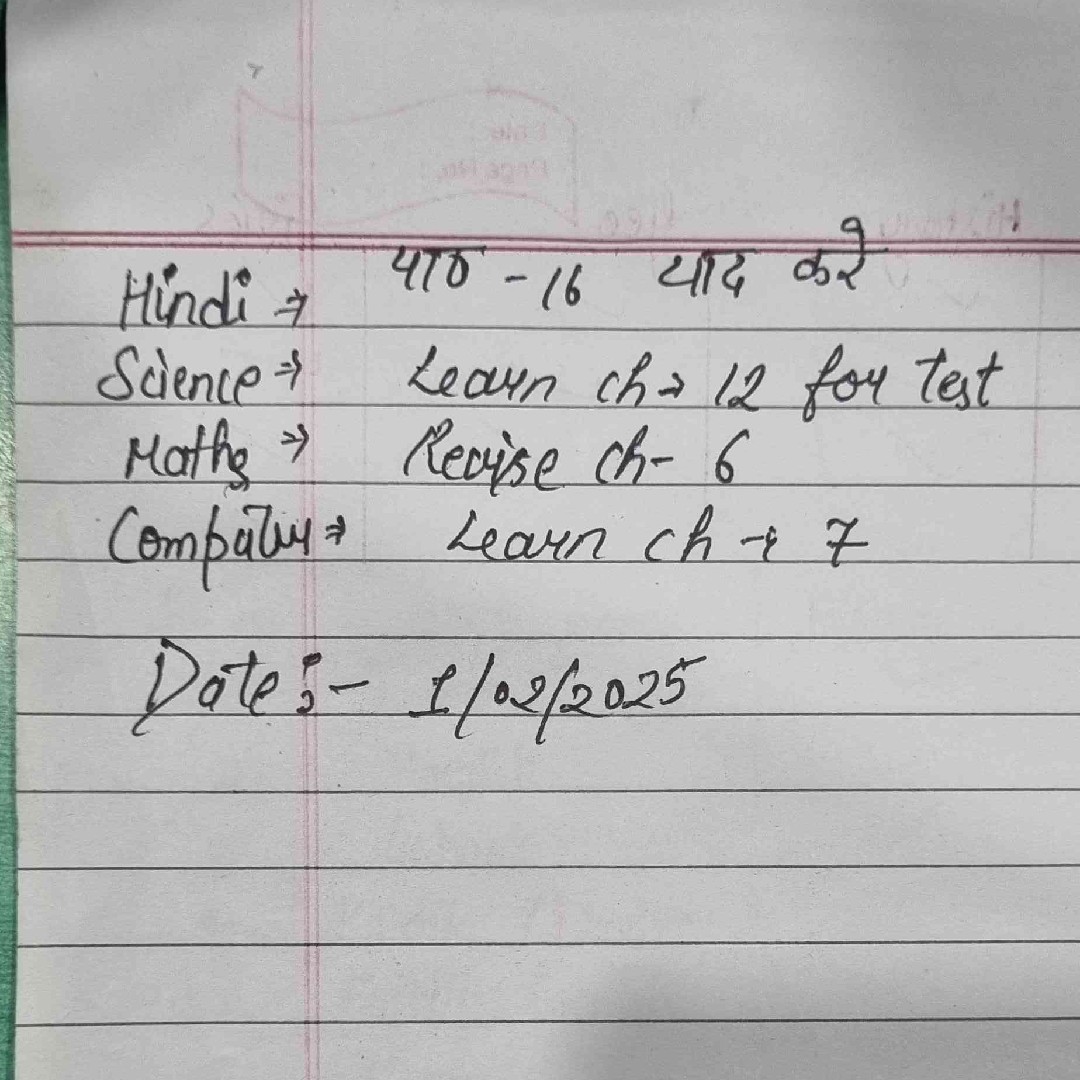 Hindi ⇒ पाठ - 16 याद करे
Science ⇒ Learn ch → 12 for Test
Maths ⇒ Revise ch - 6
Computer ⇒ Learn ch → 7
Date :- 1/02/2025